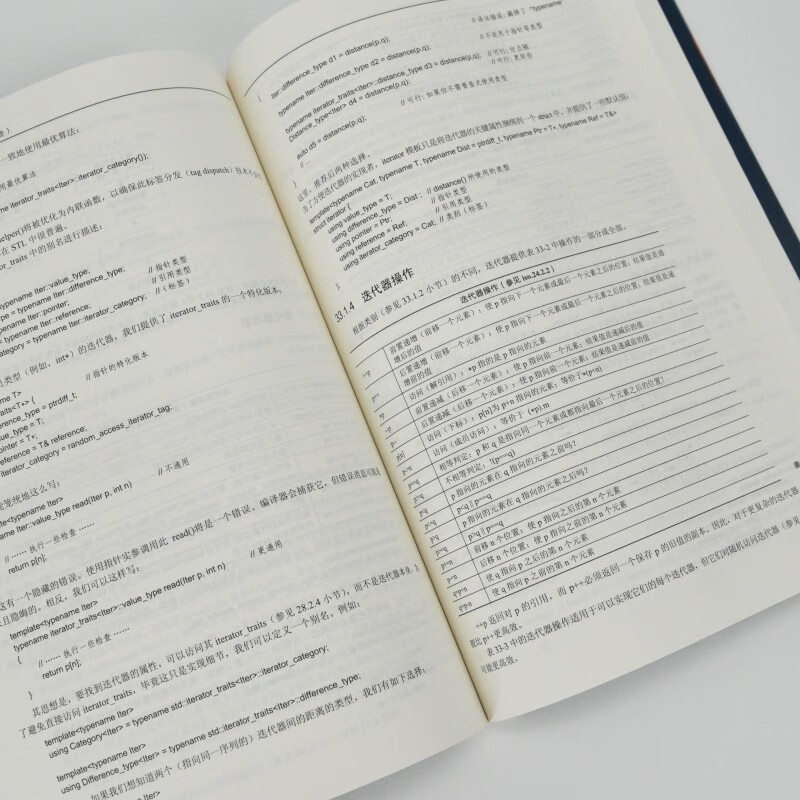 一致地使用最优算法:
iterator_traits<Iter>::iterator_category());
helper()将被优化为内联函数,以确保此标签分发(tag dispatch)技术
在 STL 中很普遍。
中的别名进行描述:
typename Iter::value_type;
= typename Iter::difference_type; // 指针类型
typename Iter::pointer; // 引用类型
typename Iter::reference; // (标签)
category = typename Iter::iterator_category;
类型(例如,int*)的迭代器,我们提供了 iterator_traits 的一个特化版本。
// 指针的特化版本
difference_type = ptrdiff_t;
value_type = T;
pointer = T*;
reference = T& reference;
iterator_category = random_access_iterator_tag;
笼统地这么写: // 不通用
template<typename Iter>
typename Iter::value_type read(Iter p, int n)
// …… 执行一些检查 ……
return p[n];
这有一个隐藏的错误。使用指针实参调用此 read()将是一个错误。编译器会捕获它,但错误消息可能
且隐晦的。相反,我们可以这样写:
template<typename Iter> // 更通用
typename iterator_traits<Iter>::value_type read(Iter p, int n)
{
// …… 执行一些检查 ……
return p[n];
}
其思想是,要找到迭代器的属性,可以访问其 iterator_traits(参见 28.2.4 小节),而不是迭代器本身。
了避免直接访问 iterator_traits,毕竟这只是实现细节,我们可以定义一个别名。例如:
template<typename Iter>
using Category<Iter> = typename std::iterator_traits<Iter>::iterator_category;
template<typename Iter>
using Difference_type<Iter> = typename std::iterator_traits<Iter>::difference_type;
如果我们想知道两个(指向同一序列的)迭代器间的距离的类型,我们有如下选择:
<typename Iter>
{
Iter::difference_type d1 = distance(p,q); // 语法错误:漏掉了 "typename"
typename Iter::difference_type d2 = distance(p,q); // 不适用于指针等类型
typename iterator_traits<Iter>::distance_type d3 = distance(p,q); // 可行:但丑陋
Distance_type<Iter> d4 = distance(p,q); // 可行:更好些
auto d5 = distance(p,q); // 可行:如果你不需要显式使用类型
// …
}
这里,推荐后两种选择。
为了方便迭代器的实现者,iterator 模板只是将迭代器的关键属性捆绑到一个 struct 中,并提供了一些默认值:
template<typename Cat, typename T, typename Dist = ptrdiff_t, typename Ptr = T*, typename Ref = T&>
struct iterator {
using value_type = T;
using difference_type = Dist; // distance() 所使用的类型
using pointer = Ptr; // 指针类型
using reference = Ref; // 引用类型
using iterator_category = Cat; // 类别(标签)
};
33.1.4 迭代器操作
根据类别(参见 33.1.2 小节)的不同,迭代器提供表 33-2 中操作的一部分或全部。
迭代器操作(参见 iso.24.2.2)
++p 前置递增(前移一个元素):使 p 指向下一个元素或最后一个元素之后的位置;结果值是递
增后的值
p++ 后置递增(前移一个元素):使 p 指向下一个元素或最后一个元素之后的位置;结果值是递
增前的值
*p 访问(解引用):*p 指的是 p 指向的元素
--p 前置递减(后移一个元素):使 p 指向前一个元素;结果值是递减后的值
p-- 后置递减(后移一个元素):使 p 指向前一个元素;结果值是递减前的值
p[n] 访问(下标):p[n]为 p+n 指向的元素;等价于*(p+n)
访问(成员访问):等价于 (*p).m
相等判定:p 和 q 是指向同一个元素或都指向最后一个元素之后的位置?
不相等判定:!(p==q)
p<q p 指向的元素在 q 指向的元素之前吗?
p<q || p==q
p>q p 指向的元素在 q 指向的元素之后吗?
p>q || p==q
前移 n 个位置:使 p 指向之后的第 n 个元素
后移 n 个位置:使 p 指向之前的第 n 个元素
q=p+n 使 q 指向 p 之后的第 n 个元素
q=p-n 使 q 指向 p 之前的第 n 个元素
++p 返回对 p 的引用,而 p++必须返回一个保存 p 的旧值的副本。因此,对于更复杂的迭代器
能比 p++更高效。
表 33-3 中的迭代器操作适用于可以实现它们的每个迭代器,但它们对随机访问迭代器(参见
可能更高效。